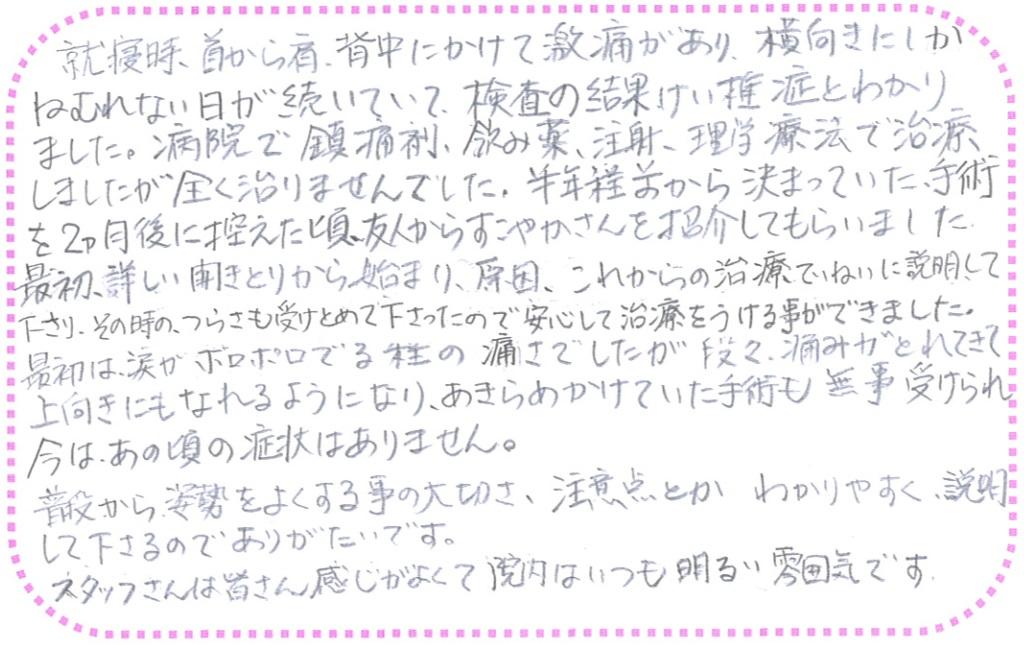 就寝時、首から肩、背中にかけて激痛があり、横向きにしか
ねむれない日が続いていて、検査の結果けい椎症とわかり
ました。病院で鎮痛剤、飲み薬、注射、理学療法で治療
しましたが全く治りませんでした。半年程前から決まっていた、手術
を2ヵ月後に控えた頃、友人からすこやかさんを紹介してもらいました。
最初、詳しい聞きとりから始まり、原因、これからの治療ていねいに説明して
下さり、その時の、つらさも受けとめて下さったので安心して治療をうける事ができました。
最初は、涙がポロポロでる程の痛さでしたが段々、痛みがとれてきて
上向きにもなれるようになり、あきらめかけていた手術も無事受けられ
今は、あの頃の症状はありません。
普段から、姿勢をよくする事の大切さ、注意点とか わかりやすく、説明
して下さるのでありがたいです。
スタッフさんは皆さん感じがよくて院内はいつも明るい雰囲気です。